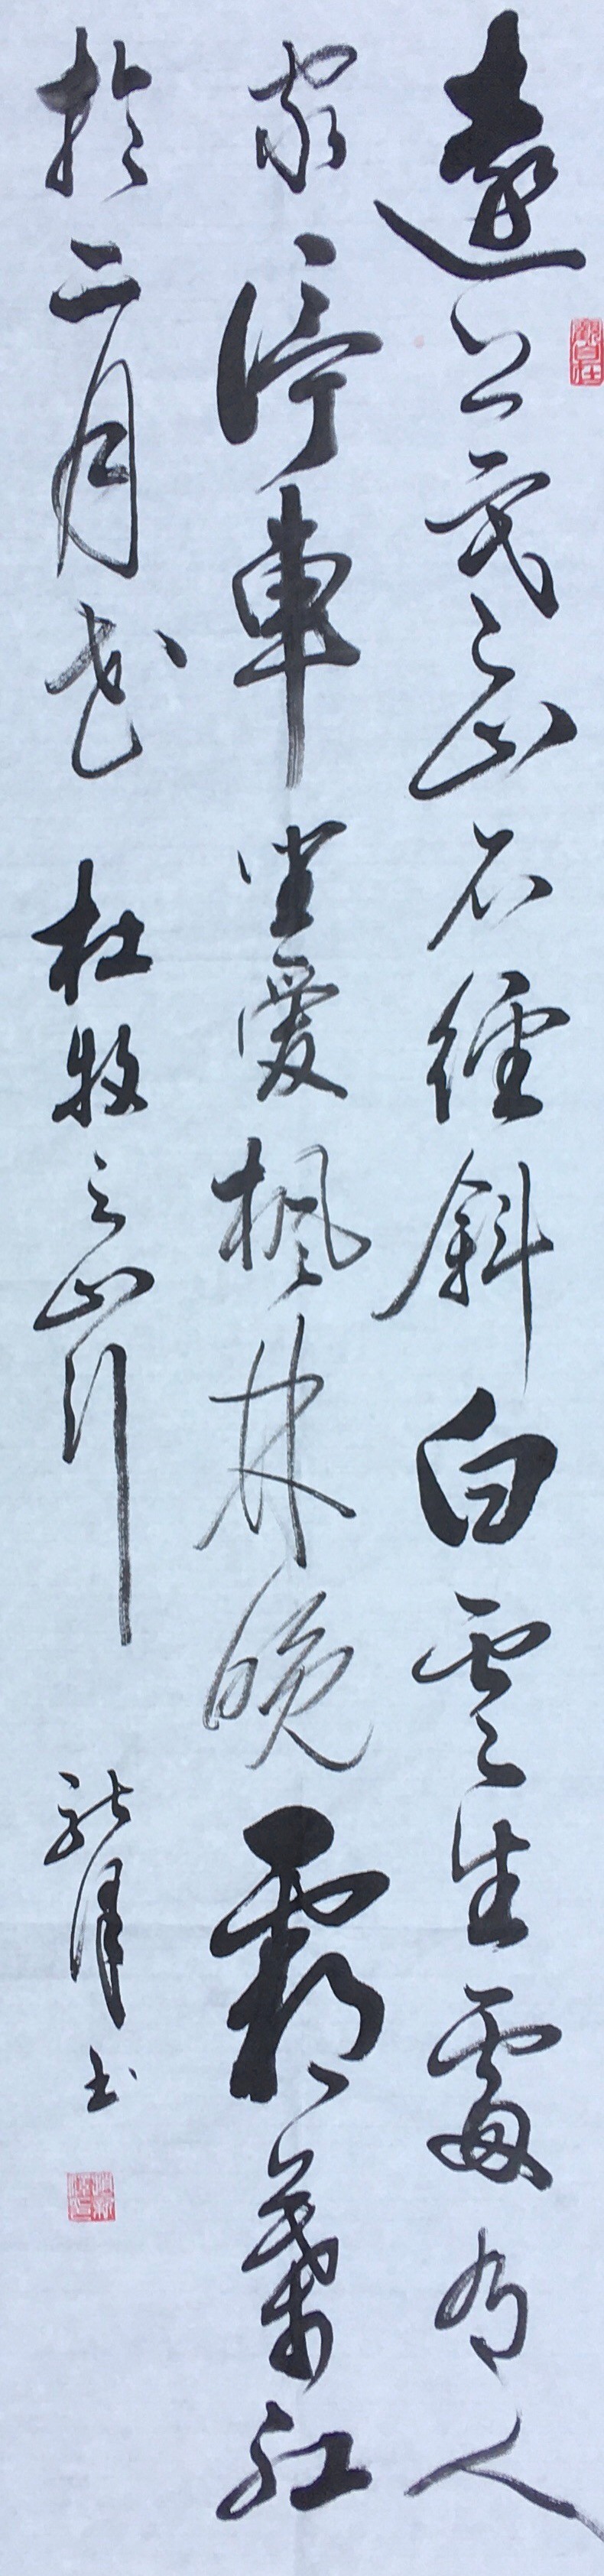 遠上寒山石徑斜白雲生處有人
家停車坐愛楓林晚霜葉紅
於二月花 杜牧之山行 书